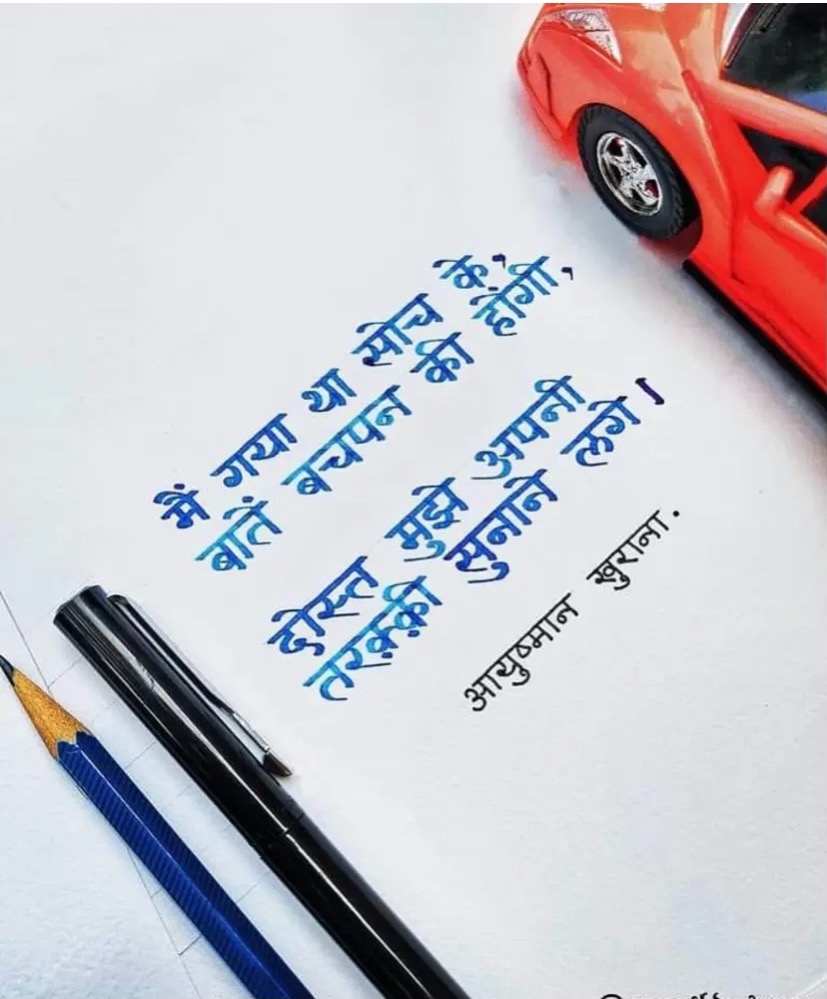 मैं गया था सोच के,
बातें बचपन की होंगी,
दोस्त मुझे अपनी
तरक़्क़ी सुनाने लगे।
आयुष्मान खुराना.